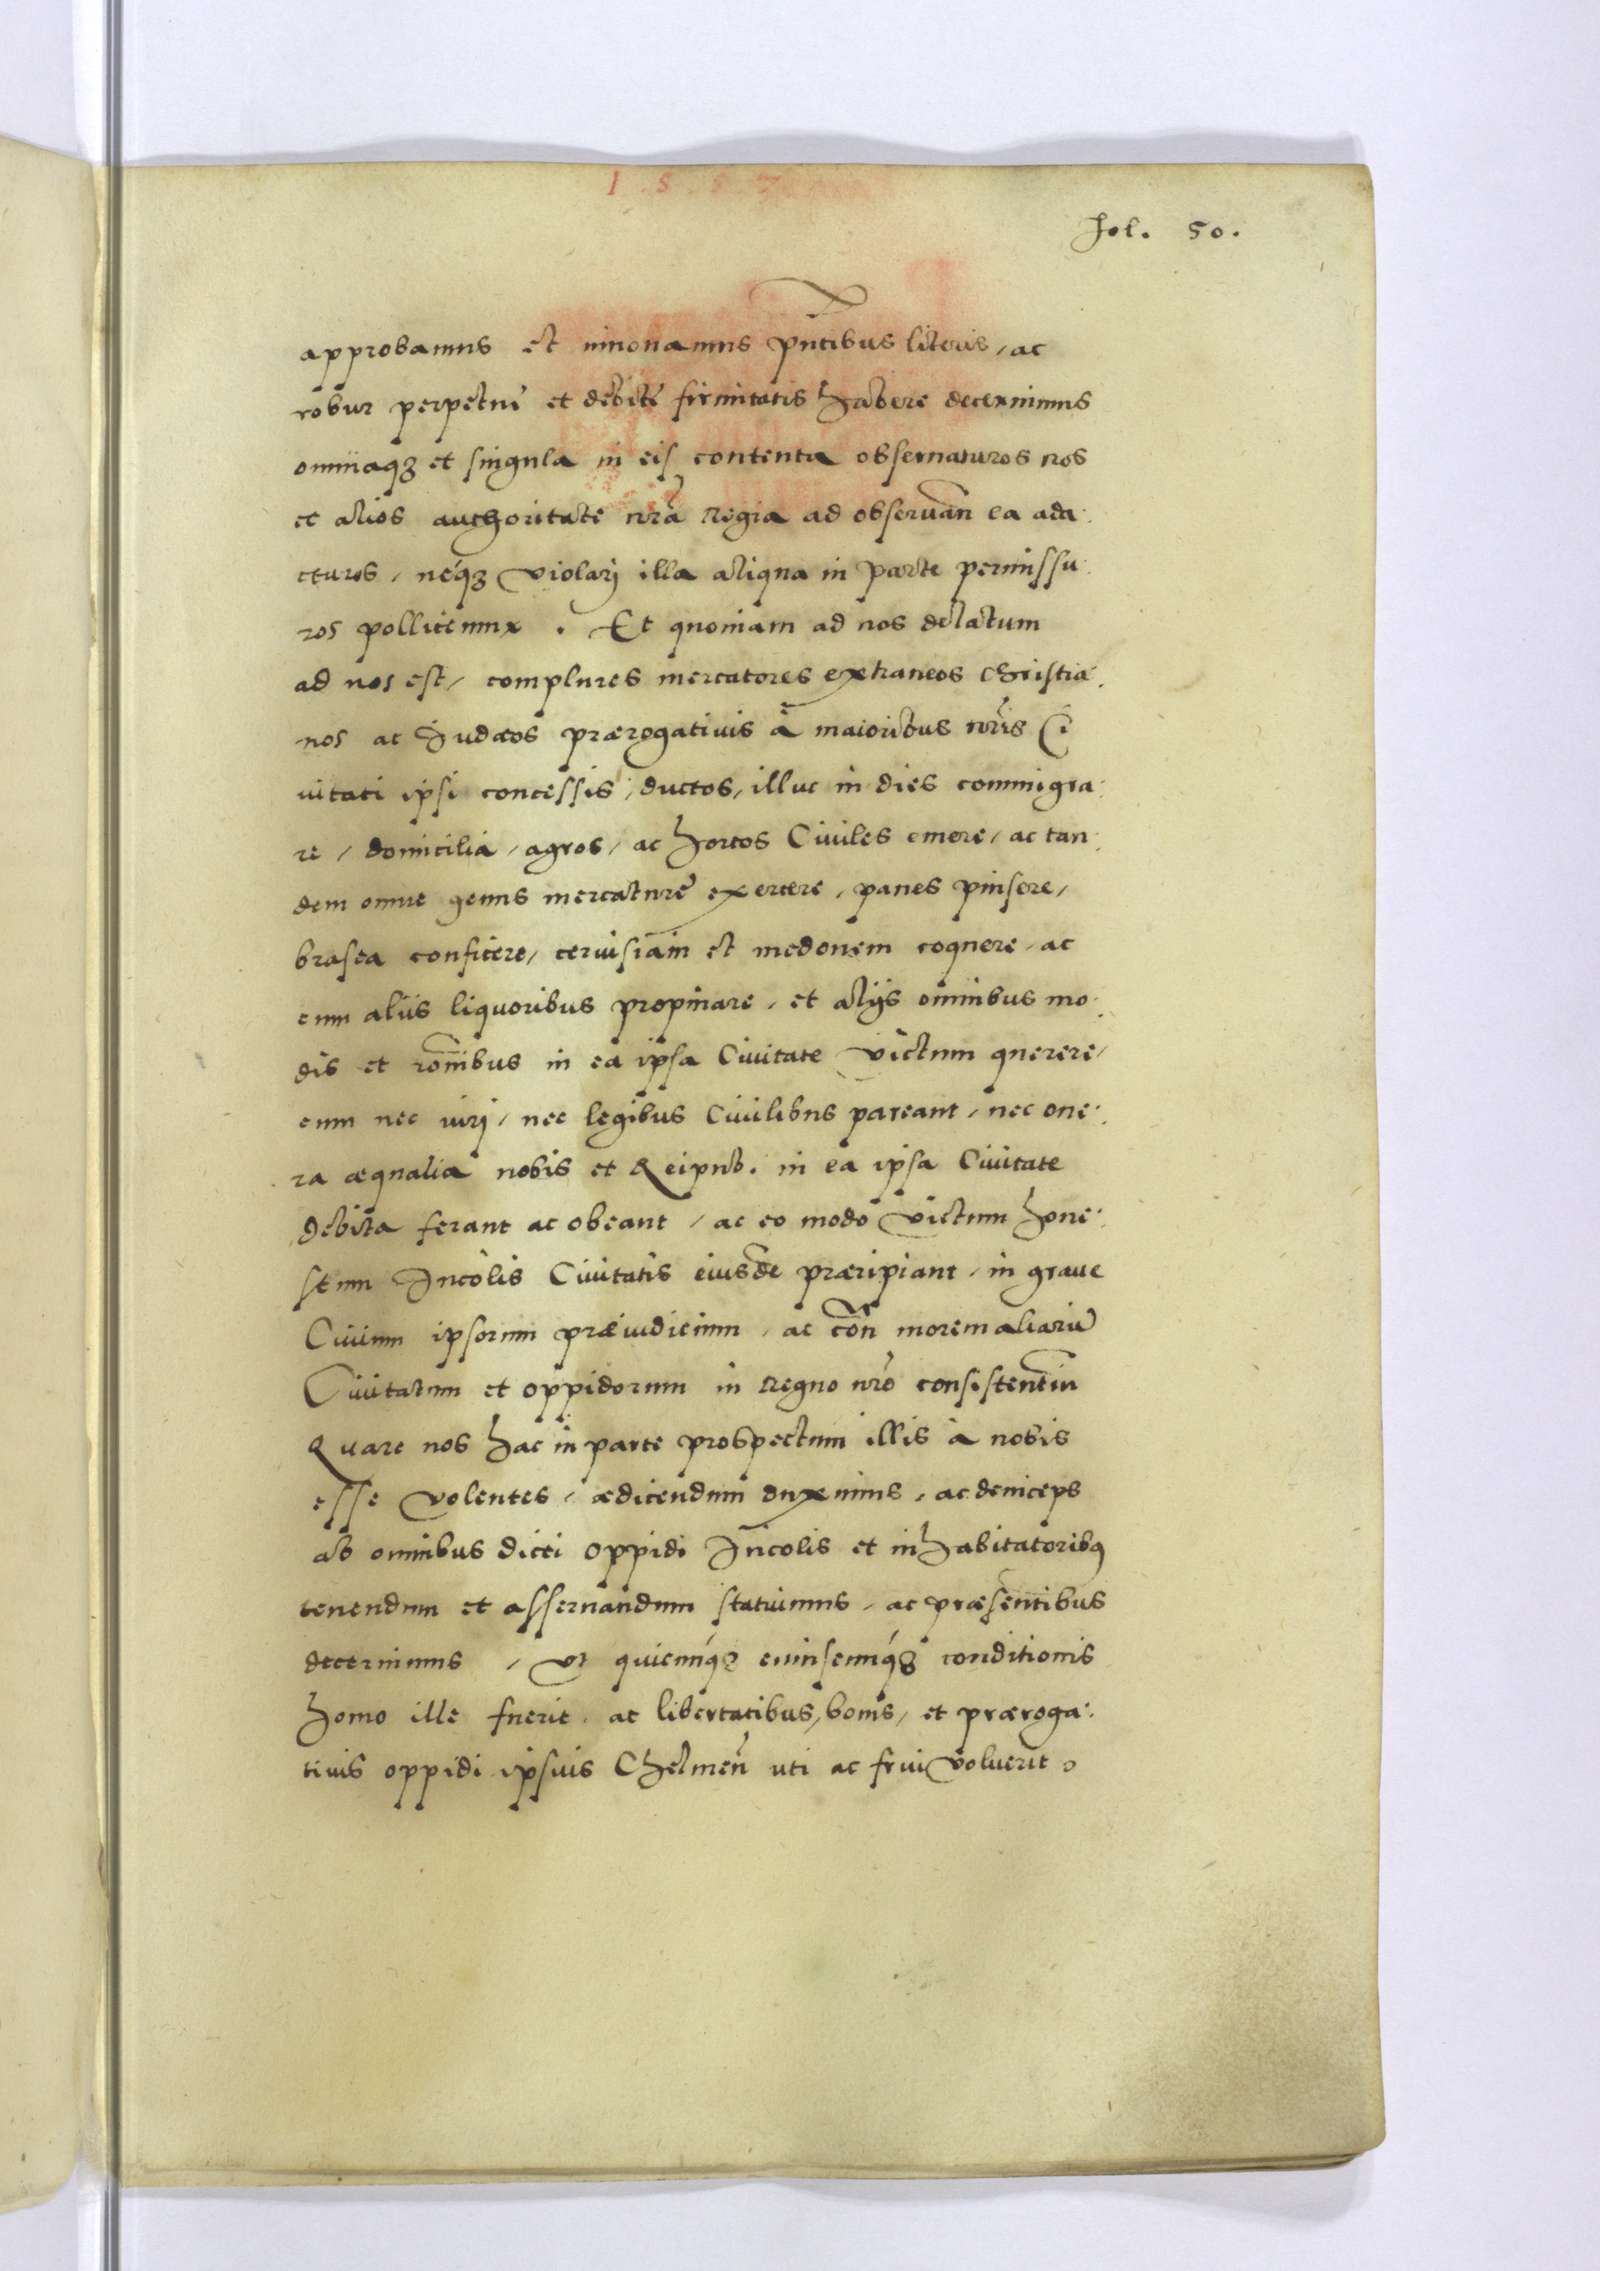 1 5 5 7
Fol. 50.
approbamus et innouamus pñtibus literis, ac
robur perpetuę et debitę firmitatis habere decernimus
omniaq3 et singula in eis contenta obseruaturos nos
et alios authoritate nr̃a Regia ad observan̄ ea ada:
cturos, neq́3 violarj illa aliqua in parte permissu:
ros pollicemur. Et quoniam ad nos delatum
ad nos est, complures mercatores extraneos Christia:
nos ac Judæos prærogativis à maioribus nr̃is Ci
uitati ipsi concessis, ductos, illuc in dies commigra:
re, domicilia, agros, ac hortos Ciuiles emere, ac tan:
dem omne genus mercaturę exercere, panes pinsere,
brasea conficere, cervisiam et medonem coquere, ac
cum alijs liquoribus propinare, et alijs omnibus mo:
dis et rōnibus in ea ipsa Ciuitate victum querere,
cum nec iurj, nec legibus Ciuilibus pareant, nec one:
ra æqualia nobis et Reipub. in ea ipsa Ciuitate
debita ferant ac obeant, ac eo modo victum hone:
stum Incolis Ciuitatis eiusdē præripiant, in graue
Ciuium ipsorum præiudicium, ac con̄ morem aliarū
Ciuitatum et oppidorum in Regno nr̃o consistentiū
Quare nos hac in parte prospectum illis à nobis
esse volentes, ædicendum duximus, ac deinceps
ab omnibus dicti oppidi Incolis et inhabitatorib9
tenendum et asseruandum statuimus, ac præsentibus
decernimus, Vt quicunq́3 cuiuscunq́3 conditionis
homo ille fuerit ac libertatibus, bonis, et præroga:
tiuis oppidi ipsius Chelmen̄ uti ac frui voluerit,